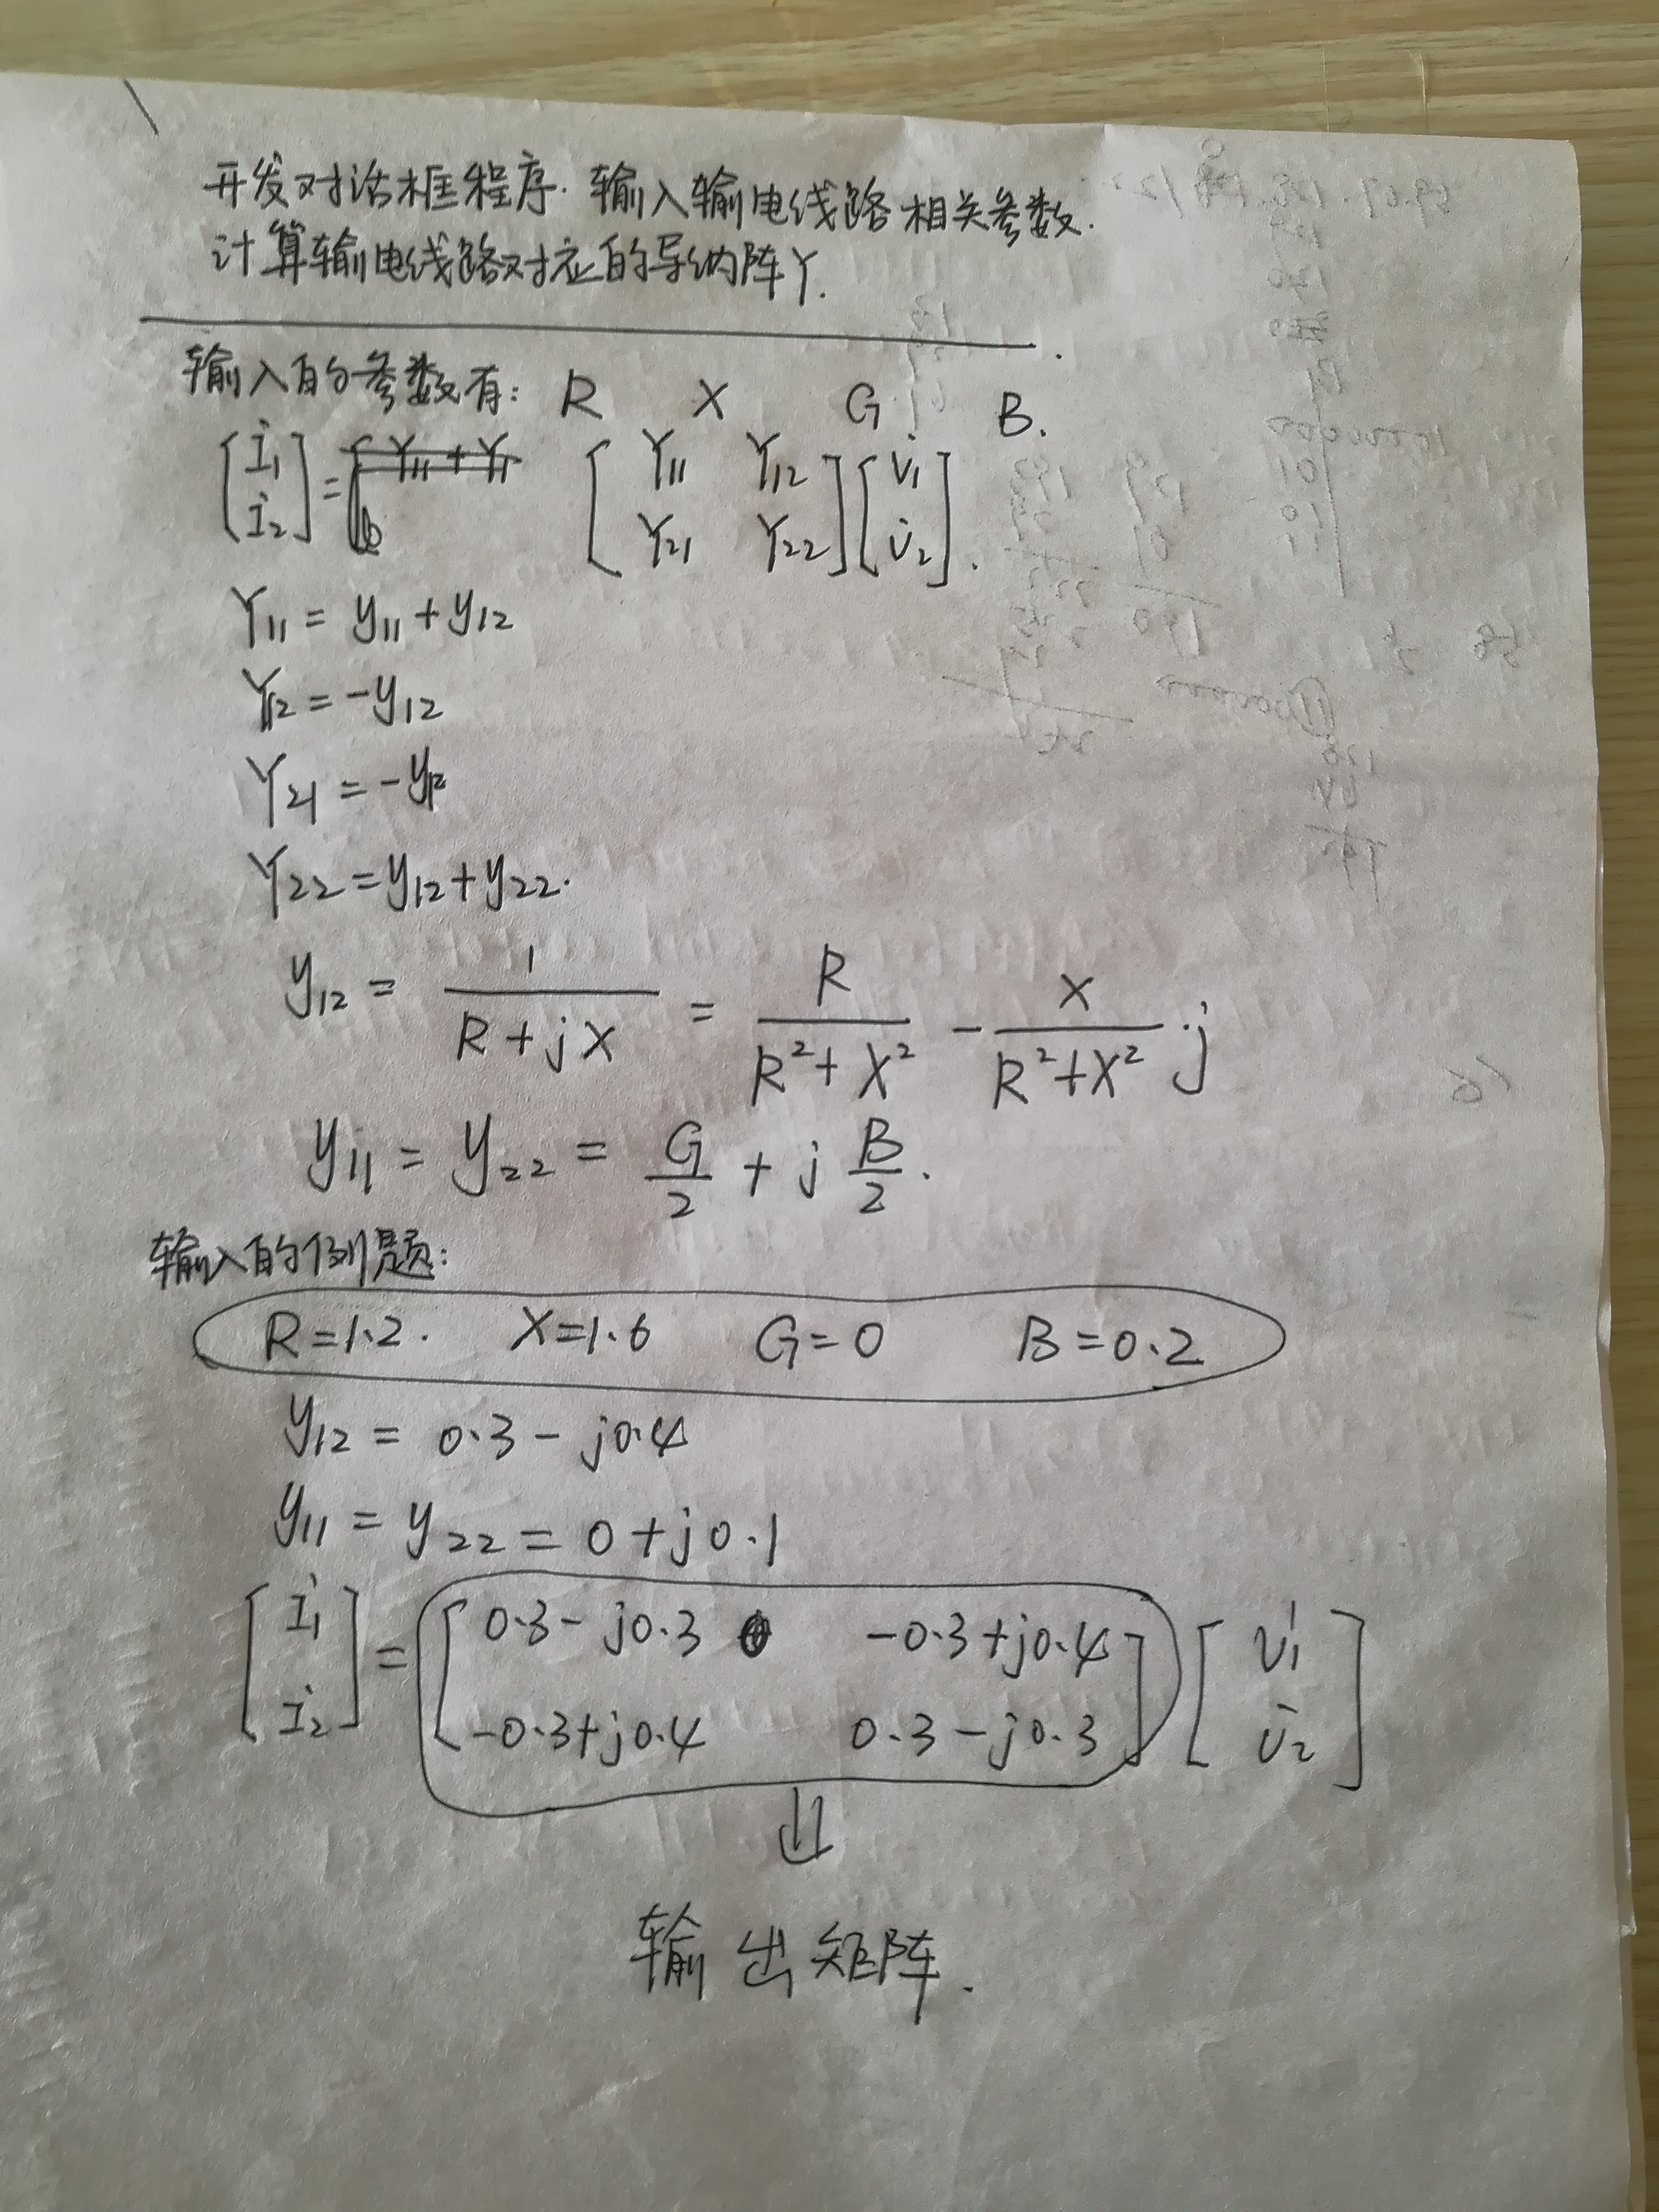 开发对话框程序. 输入输电线路相关参数.
计算输电线路对应的导纳阵Y.
输入的参数有: R X G B.
[İ1 İ2] = [Y11 Y12 Y21 Y22] [V̇1 V̇2].
Y11 = y11 + y12
Y12 = -y12
Y21 = -y12
Y22 = y12 + y22.
y12 = 1/(R + jX) = R/(R² + X²) - X/(R² + X²) · j
y11 = y22 = G/2 + j B/2.
输入的例题:
R=1.2. X=1.6 G=0 B=0.2
y12 = 0.3 - j0.4
y11 = y22 = 0 + j0.1
[İ1 İ2] = [0.3 - j0.3 -0.3+j0.4 -0.3+j0.4 0.3 - j0.3] [V̇1 V̇2]
⇓
输出矩阵.